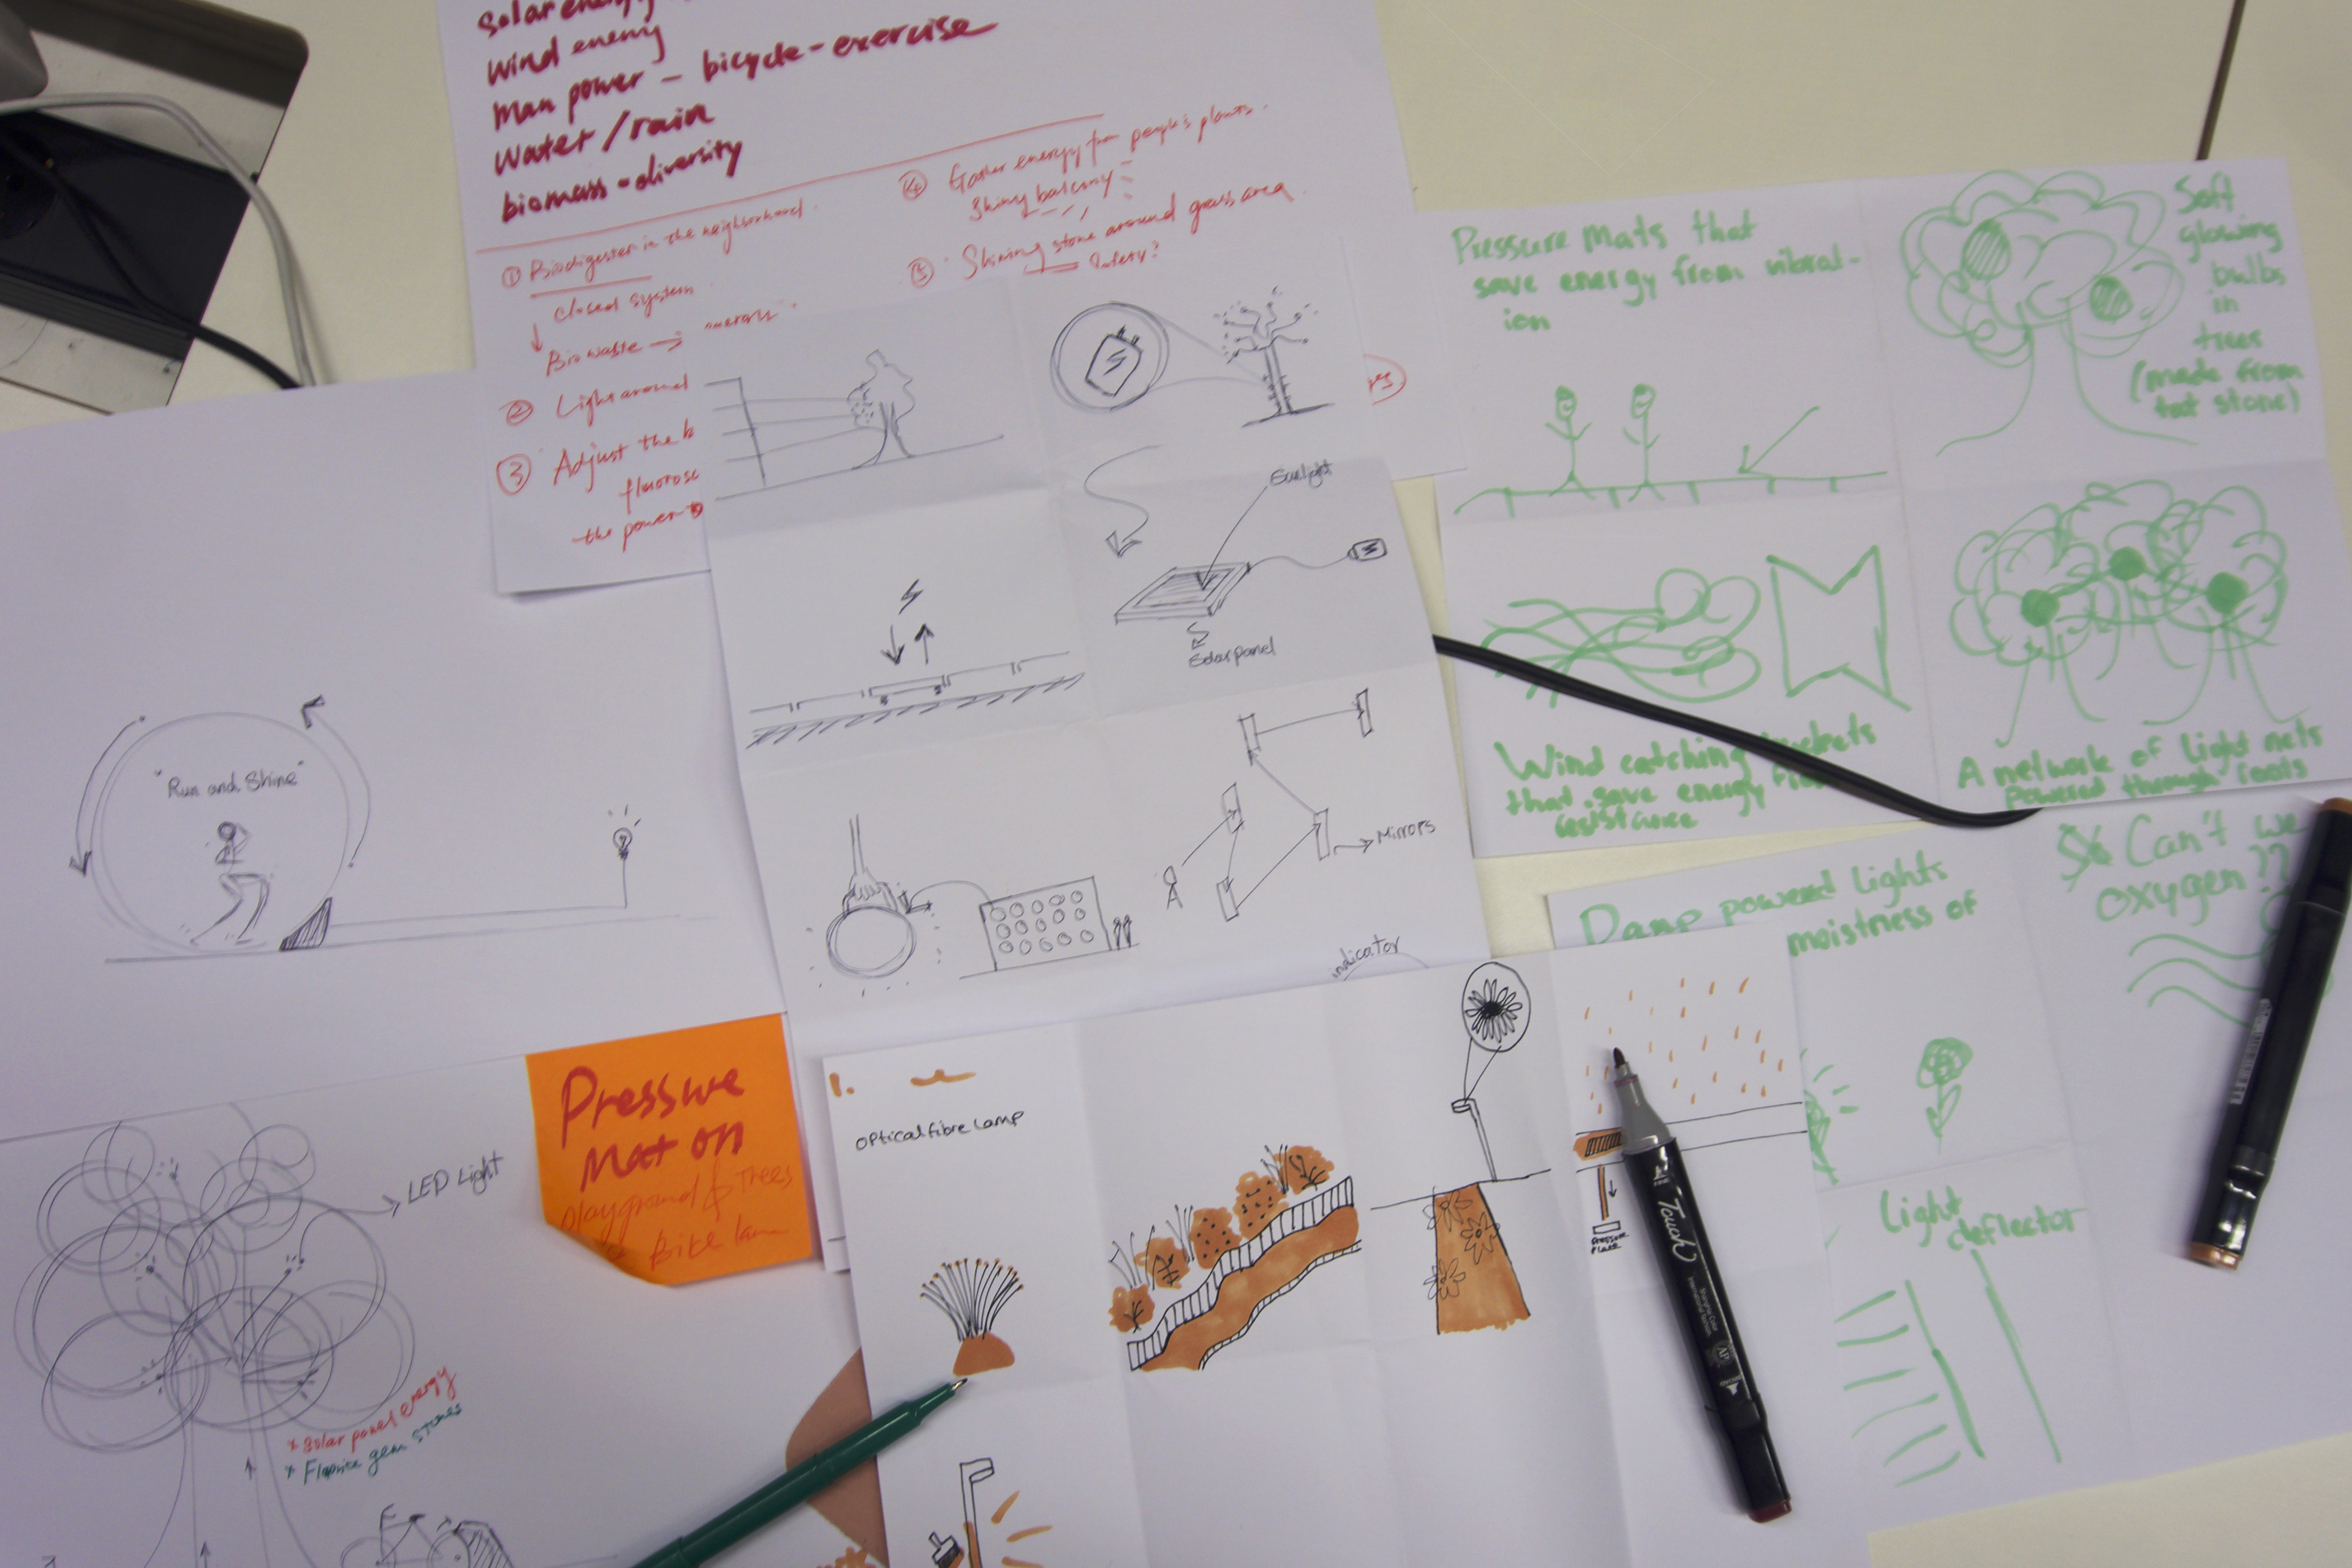 Solar energy
Wind energy
Man power - bicycle-exercise
Water/rain
biomass-diversity
① Biodigester in the neighborhood.
closed system
Bio waste →
② Light around
③ Adjust the b
fluoresc
the power
④ Gather energy from people's plants.
Shiny balcony
⑤ Shining stone around grass area.
Safety?
Pressure Mats that
save energy from vibrat-
ion
Soft
glowing
bulbs
in
trees
(made from
hot stone)
Wind catching
that save energy
resistance
A network of light nets
powered through roots
Sunlight
Solar panel
Mirrors
indicator
"Run and Shine"
Damp powered lights
moistness of
Can't we
oxygen??
Light
deflector
LED Light
* Solar panel energy
* gem stones
Pressure
Mat on
playground & Trees
Bike lane
1.
Optical fibre lamp
Pressure
Plate
Touch